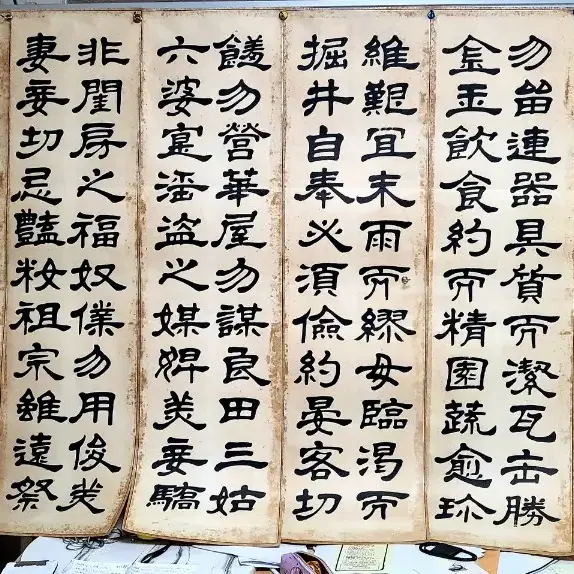 勿留連器具質而潔瓦缶勝
金玉飲食約而精園蔬愈珍
維艱宜未雨而繆毋臨渴而
掘井自奉必須儉約晏客切
饈勿營華屋勿謀良田三姑
六婆寔淫盜之媒婢美妾驕
非閨房之福奴僕勿用俊美
妻妾切忌豔妝祖宗雖遠祭